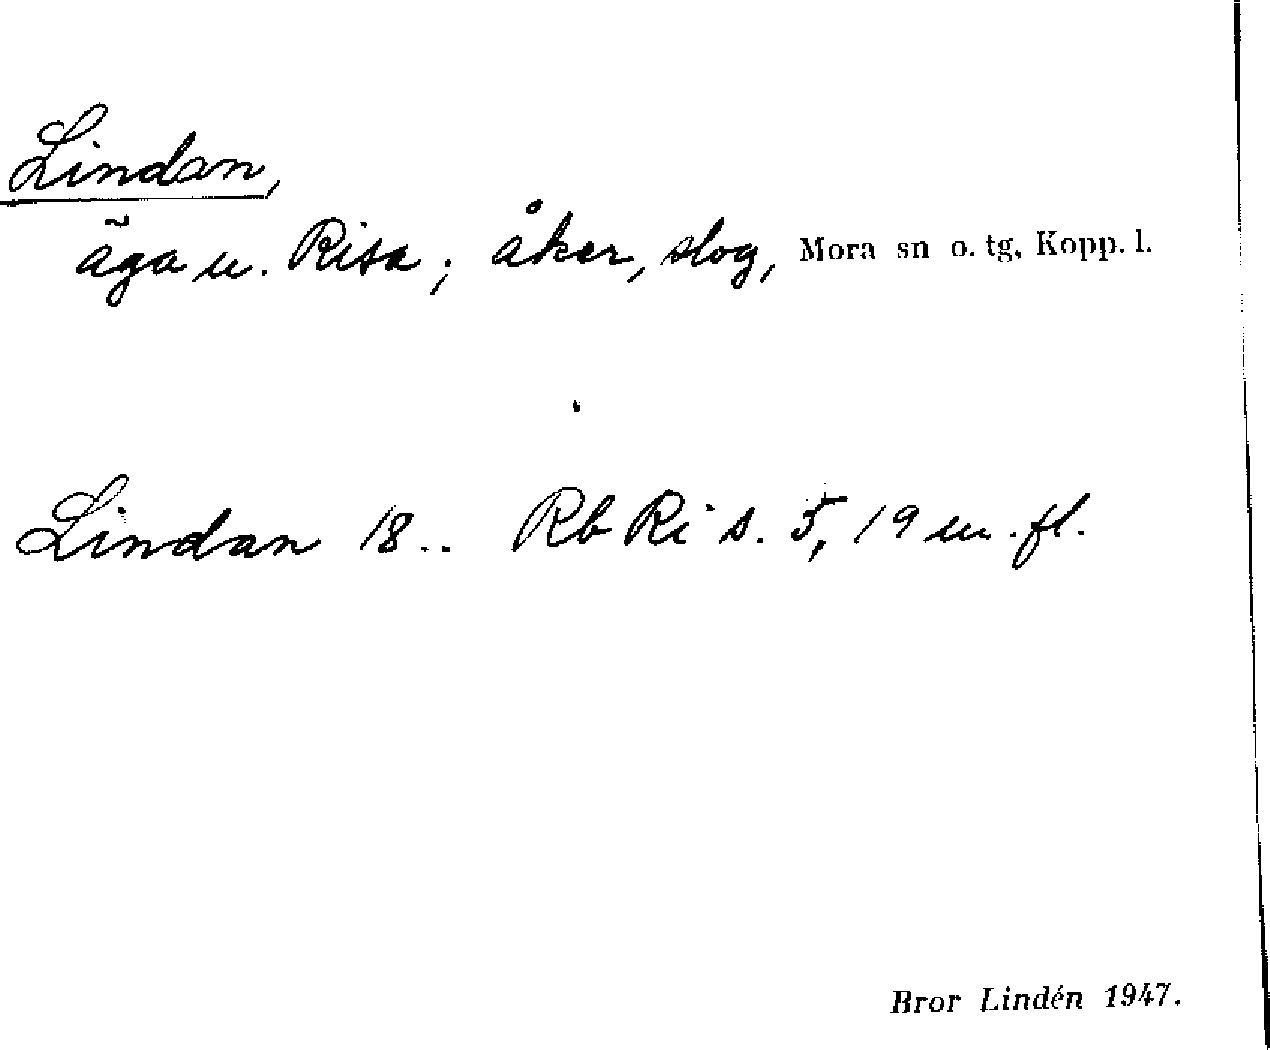 Lindan,
äga u. Risa; åker, slog, Mora sn o. tg, Kopp. l.
Lindan 18.. Rb Ri s. 5, 19 m.fl.
Bror Lindén 1947.